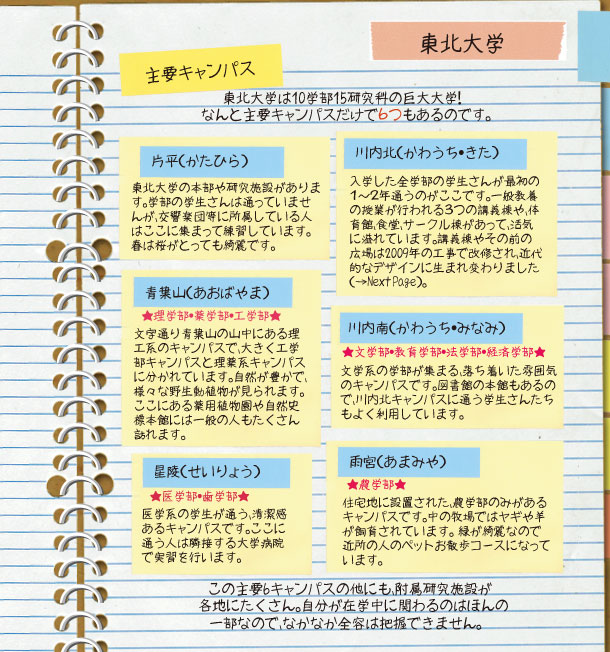 東北大学
主要キャンパス
東北大学は10学部15研究科の巨大大学!
なんと主要キャンパスだけで6つもあるのです。
片平(かたひら)
東北大学の本部や研究施設がありま
す。学部の学生さんは通っていませ
んが、交響楽団等に所属している人
はここに集まって練習しています。
春は桜がとっても綺麗です。
川内北(かわうち・きた)
入学した全学部の学生さんが最初の
1〜2年通うのがここです。一般教養
の授業が行われる3つの講義棟や、体
育館、食堂、サークル棟があって、活気
に溢れています。講義棟やその前の
広場は2009年の工事で改修され、近代
的なデザインに生まれ変わりました
(→Next Page)。
青葉山(あおばやま)
★理学部・薬学部・工学部★
文字通り青葉山の山中にある理
工系のキャンパスで、大きく工学
部キャンパスと理薬系キャンパス
に分かれています。自然が豊かで、
様々な野生動植物が見られます。
ここにある薬用植物園や自然史
標本館には一般の人もたくさん
訪れます。
川内南(かわうち・みなみ)
★文学部・教育学部・法学部・経済学部★
文学系の学部が集まる、落ち着いた雰囲気
のキャンパスです。図書館の本館もあるの
で、川内北キャンパスに通う学生さんたち
もよく利用しています。
星陵(せいりょう)
★医学部・歯学部★
医学系の学生が通う、清潔感
あるキャンパスです。ここに
通う人は隣接する大学病院
で実習を行います。
雨宮(あまみや)
★農学部★
住宅地に設置された、農学部のみがある
キャンパスです。中の牧場ではヤギや羊
が飼育されています。緑が綺麗なので
近所の人のペットお散歩コースになって
います。
この主要6キャンパスの他にも、附属研究施設が
各地にたくさん。自分が在学中に関わるのはほんの
一部なので、なかなか全容は把握できません。